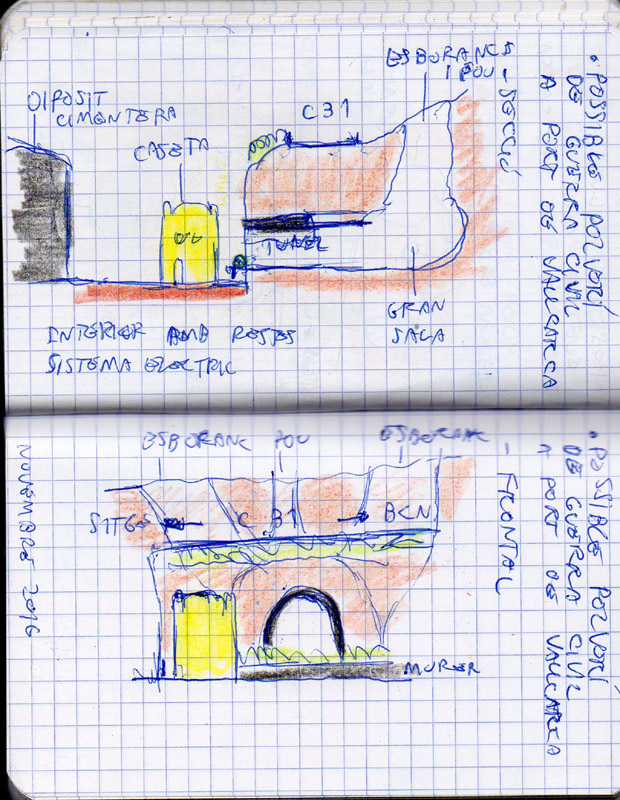 • POSSIBLE POLVORÍ
DE GUERRA CIVIL
A PORT DE VALLCARCA
- SECCIÓ
ESBORANCS
I POU
C31
DIPOSIT
CIMENTERA
CASETA
TUNEL
GRAN
SALA
INTERIOR AMB RESTES
SISTEMA ELECTRIC
• POSSIBLE POLVORÍ
DE GUERRA CIVIL
A PORT DE VALLCARCA
- FRONTAL
ESBORANC POU ESBORANC
SITGES C31 BCN
MURET
NOVEMBRE 2016